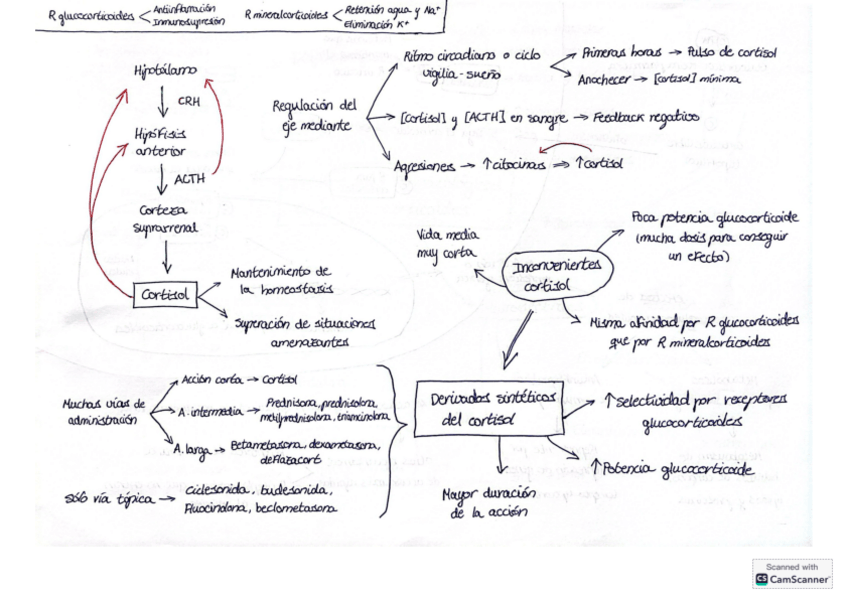 R glucocorticoides
Antiinflamación
Inmunosupresión
R mineralcorticoides
Retención agua y Na+
Eliminación K+
Hipotálamo
CRH
Hipófisis
anterior
ACTH
Corteza
suprarrenal
Cortisol
Mantenimiento de
la homeostasis
Superación de situaciones
amenazantes
Regulación del
eje mediante
Ritmo circadiano o ciclo
vigilia-sueño
Primeras horas → Pulso de cortisol
Anochecer → [cortisol] mínima
[Cortisol] y [ACTH] en sangre → Feedback negativo
Agresiones → ↑citocinas ⇒ ↑cortisol
Inconvenientes
cortisol
Vida media
muy corta
Poca potencia glucocorticoide
(mucha dosis para conseguir
un efecto)
Misma afinidad por R glucocorticoides
que por R mineralcorticoides
Derivados sintéticos
del cortisol
↑selectividad por receptores
glucocorticoides
↑Potencia glucocorticoide
Mayor duración
de la acción
Muchas vías de
administración
Acción corta → Cortisol
A. intermedia → Prednisona, prednisolona,
metilprednisolona, triamcinolona
A. larga → Betametasona, dexametasona,
deflazacort
Sólo vía típica → Ciclesonida, budesonida,
Fluocinolona, beclometasona
Scanned with
CS CamScanner